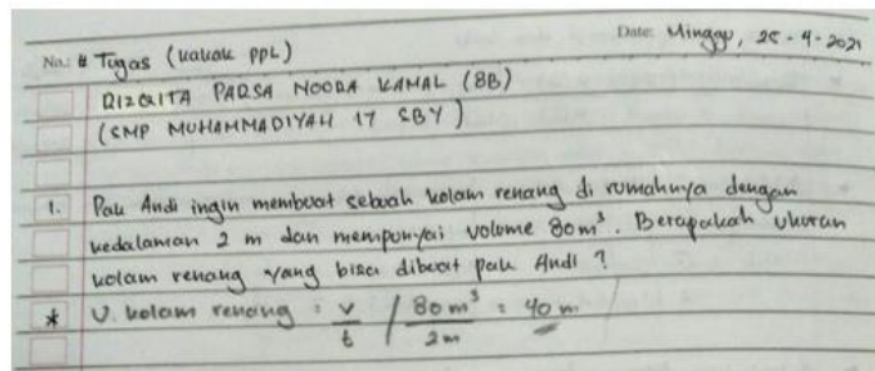 Date: Minggu, 25 - 4 - 2021
No.: # Tugas (kakak PPL)
RIZQITA PARSA NOORA KAMAL (8B)
(SMP MUHAMMADIYAH 17 SBY)
1. Pak Andi ingin membuat sebuah kolam renang di rumahnya dengan
kedalaman 2 m dan mempunyai volume 80 m³. Berapakah ukuran
kolam renang yang bisa dibuat pak Andi ?
* U. kolam renang : v/t / 80 m³/2m : 40 m